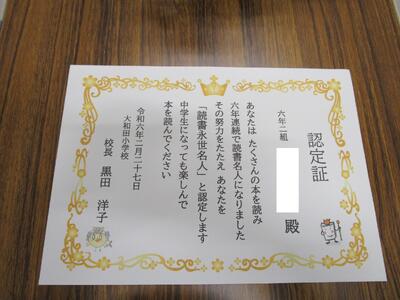 認定証
六年二組
殿
あなたは たくさんの本を読み
六年連続で読書名人になりました
その努力をたたえ あなたを
「読書永世名人」と認定します
中学生になっても楽しんで
本を読んでください
令和六年二月二十七日
大和田小学校
校長 黒田 洋子